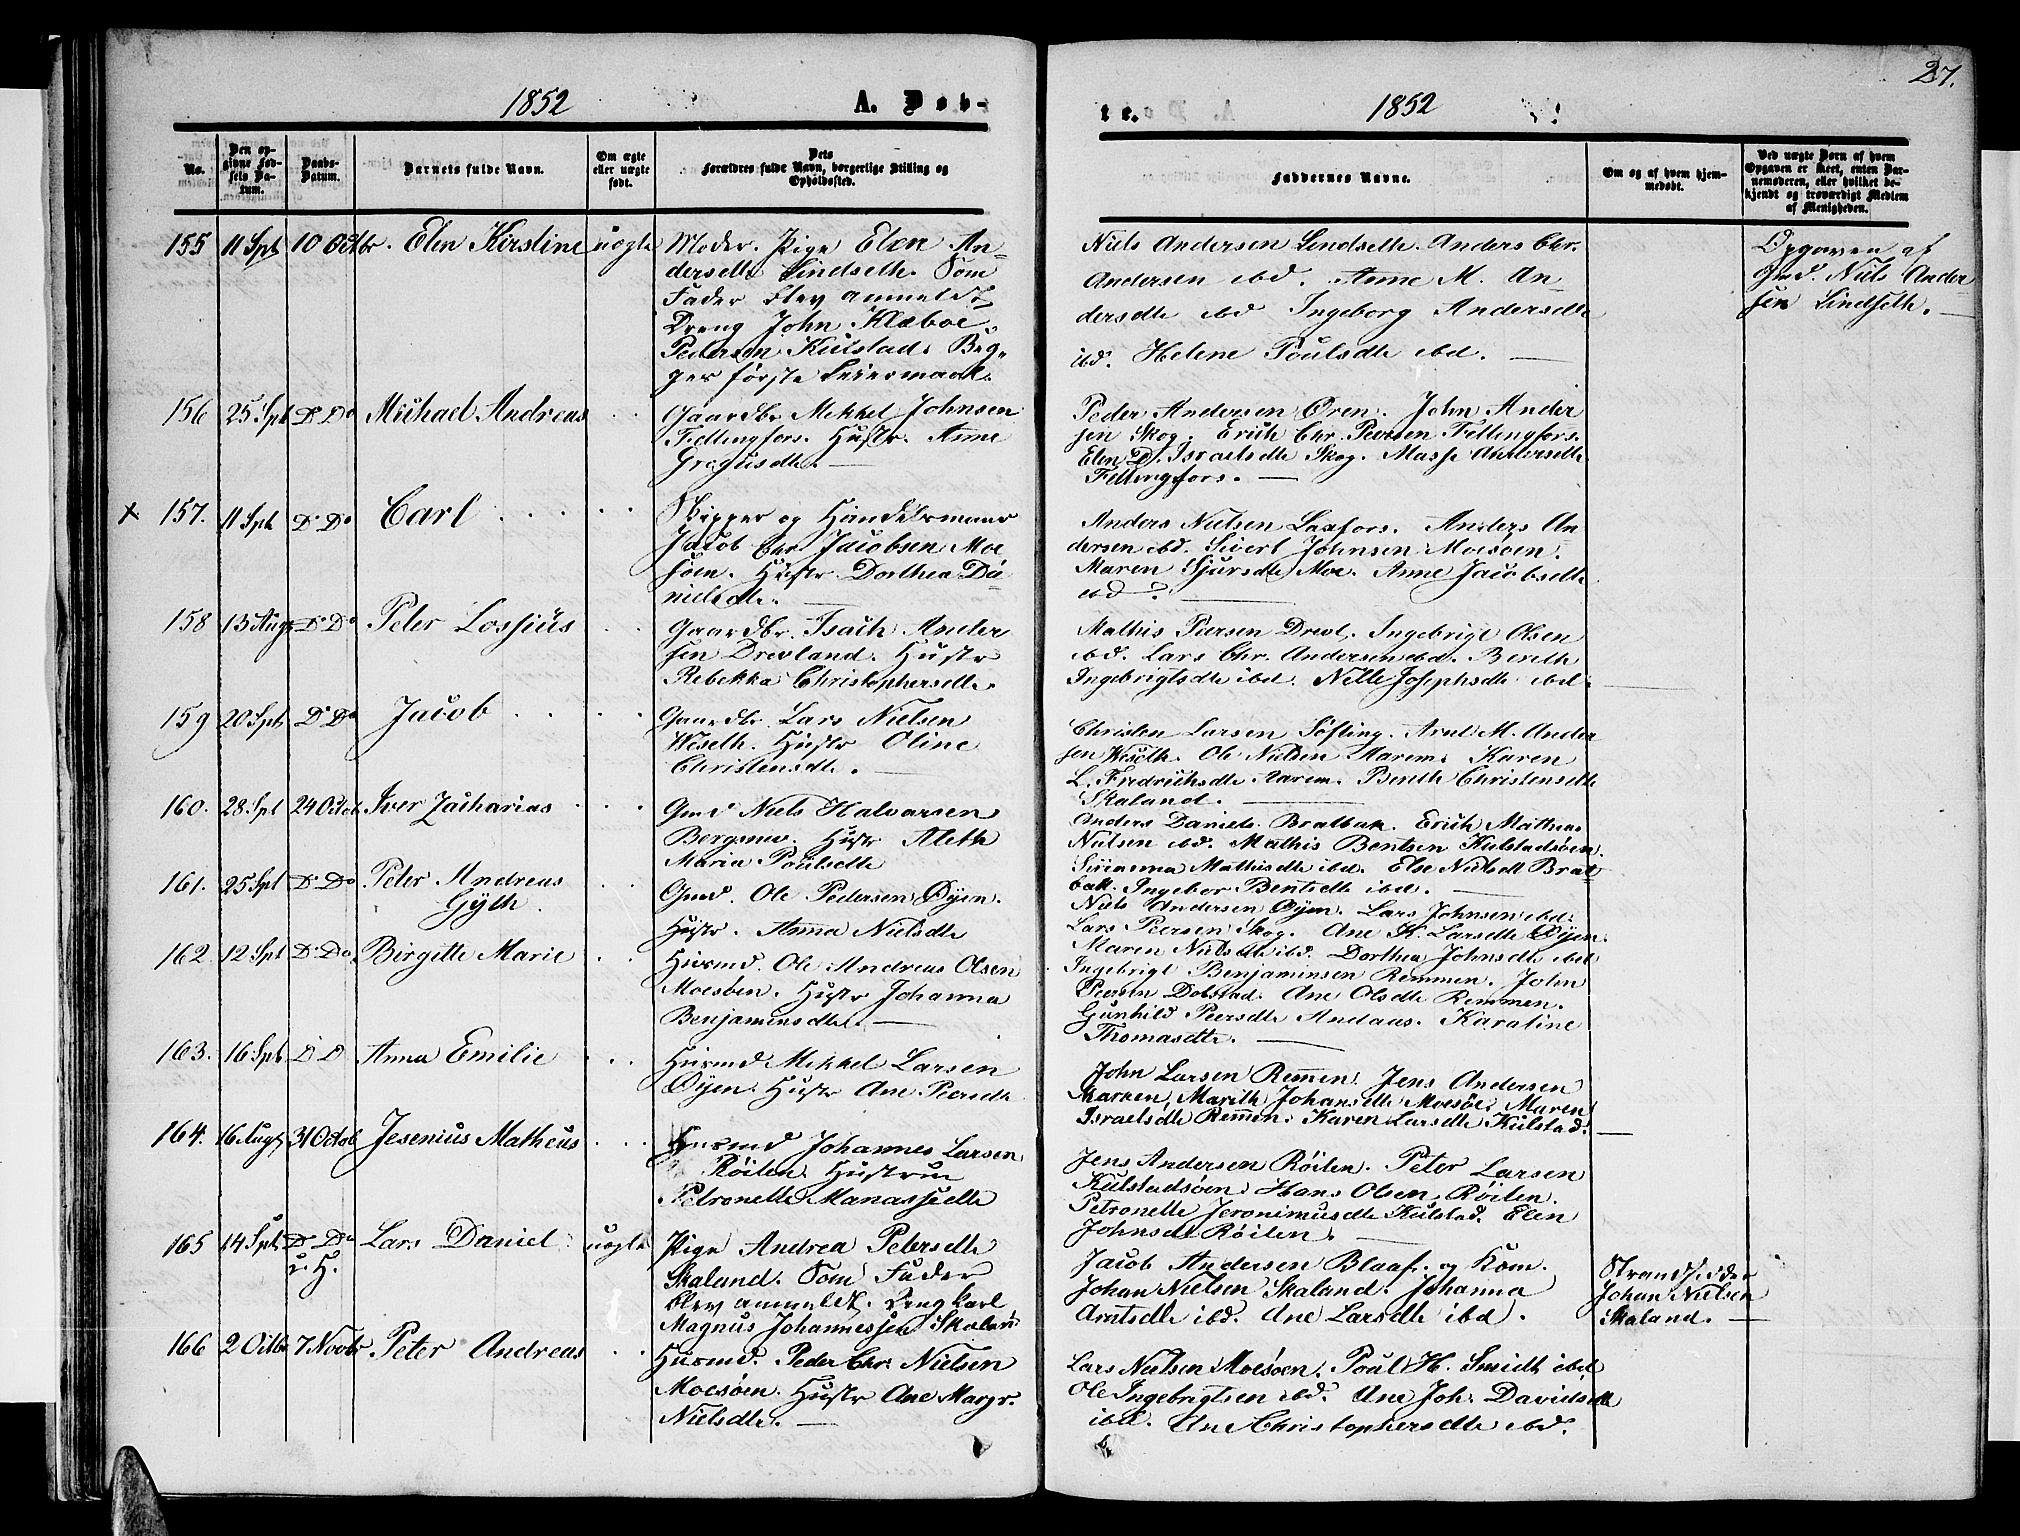 27.
1852
A. Døb-
No.
Den op-
givne Fød-
sels Da-
tum.
Daabs-
Datum.
Barnets fulde Navn.
Om ægte
eller uægte
født.
Dets
Forældres fulde Navn, borgerlige Stilling og
Opholdssted.
155 11 Spt 10 Octbr. Elen Kirstine uægte
Moder. Pige Elen An-
dersdtr Lindseth. Som
Fader blev anmeldt
Dreng John Klæboe
Pedersen Kulstad. Beg-
ges første Leiermaal.
156 25 Spt D. Do Michael Andreas . .
Gaardbr Mikkel Johnsen
Fellingfors. Hustr. Anne
Gregusdtr. —
x 157. 11 Spt D. Do Carl . . . . . .
Skipper og Handelsmann
Jacob Chr Jacobsen Moe
søen. Hustr Dorthea Da-
nielsdtr. —
158 13 Aug D. Do Peter Lossius . .
Gaardbr. Isach Ander
sen Drevland. Hustr
Rebekka Christophersdtr.
159 20 Spt D. Do Jacob . . . .
Gaardbr. Lars Nielsen
Wiseth. Hustr Oline
Christensdtr. —
160. 28. Spt 24 Octob. Iver Zacharias . . .
Gmd Niels Halvorsen
Bergsnev. Hustr Aleth
Maria Poulsdtr
161. 25 Spt D. Do Peter Andreas . .
Gyth.
Gmd. Ole Pedersen Øyen.
Hustr. Anna Nielsdtr
162. 12 Spt D. Do Birgitte Marie . .
Husmd. Ole Andreas Olsen
Moesøen. Hustr Johanna
Benjaminsdtr. —
163. 16 Spt. D. D Anna Emilie . . .
Husmd Mikkel Larsen
Øyen. Hustr Ane Peersdtr
164. 16 Aug 31 Octob Jesenius Matheus . . .
Husmd Johannes Larsen
Røilen. Hustrue
Petronelle Manassedtr
165 14 Spt. D. Do Lars Daniel . uægte
v. H.
Pige Andrea Petersdtr
Skaland. Som Fader
blev anmeldt. Ungkarl
Magnus Johannessen Skaland
166 2 Octbr 7 Novbr. Peter Andreas . .
Husmd. Peder Chr. Nielsen
Moesøen. Hustr Ane Margr.
Nielsdtr. —
te.
1852
Faddernes Navne.
Om og af hvem hjem-
medøbt.
Ved uægte Børn af hvem
Opgaven er skeet, enten Bar-
nemoderen, eller hvilket be-
kjendt og troværdigt Medlem
af Menigheden.
Niels Andersen Lindseth. Anders Chr.
Andersen ibd. Anne M. An-
dersdtr ibd Ingeborg Andersdtr
ibd. Helene Poulsdtr ibd. —
Opgaven af
Gmd. Niels Ander
sen Lindseth. —
Peder Andersen Øren. John Ander
sen Skog. Erich Chr. Peersen Fellingfors.
Elen D. Israelsdtr Skog. Masse Andersdtr
Fellingfors. —
Anders Nielsen Laxfors. Anders An
dersen ibd. Sivert Johnsen Moesøen.
Maren Sjursdtr Moe. Anne Jacobsdtr
ibd. —
Mathis Peersen Drevl. Ingebrigt Olsen
ibd. Lars Chr. Andersen ibd. Berith
Ingebrigtsdtr ibd. Nille Josephsdtr ibd.
Christen Larsen Søfting. Arnt M. Ander
sen Wiseth. Ole Nielsen Marem. Karen
L. Fredrichsdtr Marem. Benth Christensdtr
Skaland. —
Anders Daniels. Bratbak. Erich Mathias
Nielsen ibd. Mathis Bentsen Kulstadsøen.
Susanna Mathisdtr ibd. Else Nielsdt Brat-
bak. Ingebor Bentsdtr ibd. —
Niels Andersen Øyen. Lars Johnsen ibd.
Lars Peersen Skog. Ane K. Larsdtr Øyen.
Maren Nielsdtr ibd. Dorthea Johnsdtr ibd
Ingebrigt Benjaminsen Remmen. John
Peersen Dolstad. Ane Olsdtr Remmen.
Gunhild Peersdtr Andaas. Karoline
Thomasdtr. —
John Larsen Remen. Jens Andersen
Marken. Marith Johansdtr Moesøe. Maren
Israelsdtr Remen. Karen Larsdtr Kulstad. —
Jens Andersen Røilen. Peter Larsen
Kulstadsøen. Hans Olsen Røilen.
Petronelle Jeronimusdtr Kulstad. Elen
Johnsdt Røilen. —
Jacob Andersen Blaaf. og Kom.
Johan Nielsen Skaland. Johanna
Arntsdtr ibd. Ane Larsdtr ibd.
Strandsidder
Johan Nielsen
Skaland. —
Lars Nielsen Moesøen. Poul H. Smidt ibd
Ole Ingebrigtsen ibd. Ane Joh. Davidsdtr
ibd. Ane Christophersdtr ibd.